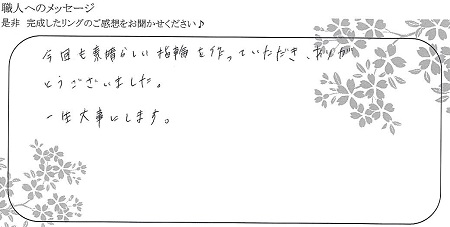 職人へのメッセージ
是非 完成したリングのご感想をお聞かせください♪
今回も素晴らしい指輪を作っていただき、ありが
とうございました。
一生大事にします。